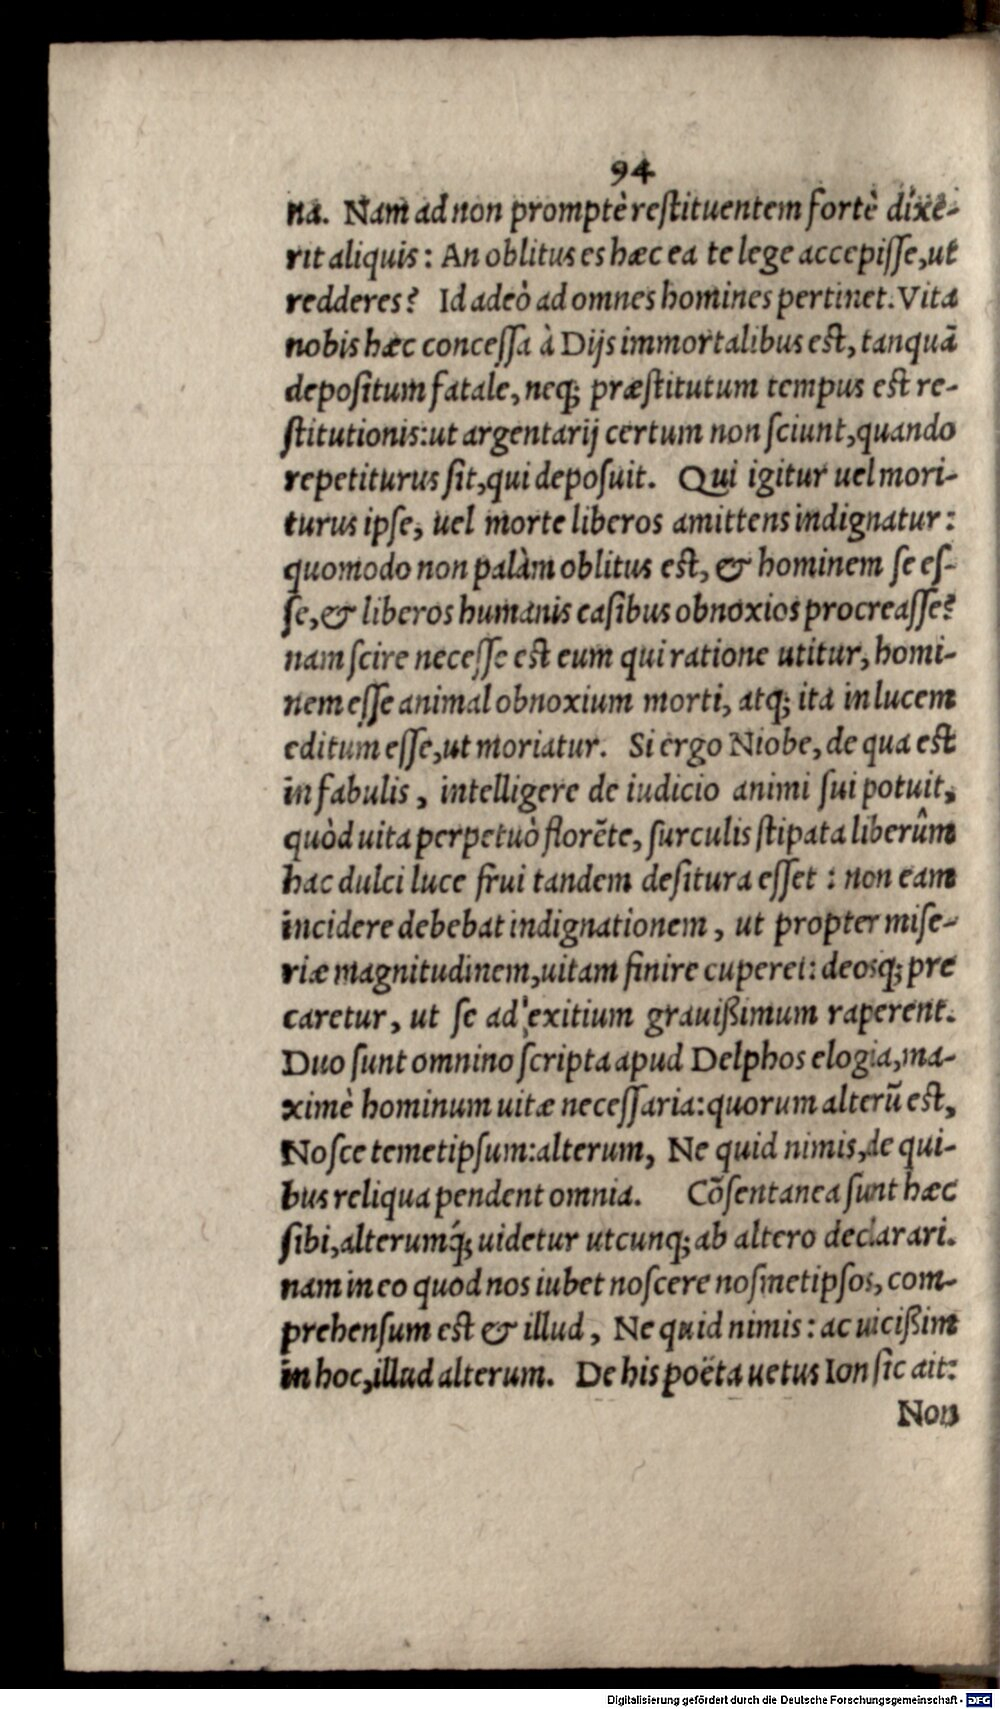 94
na. Nam ad non promptè restituentem fortè dixe-
rit aliquis: An oblitus es hæc ea te lege accepisse, ut
redderes? Id adeò ad omnes homines pertinet. Vita
nobis hæc concessa à Dijs immortalibus est, tanquā
depositum fatale, neq; præstitutum tempus est re-
stitutionis: ut argentarij certum non sciunt, quando
repetiturus sit, qui deposuit. Qui igitur uel mori-
turus ipse, uel morte liberos amittens indignatur:
quomodo non palàm oblitus est, & hominem se es-
se, & liberos humanis casibus obnoxios procreasse?
nam scire necesse est eum qui ratione utitur, homi-
nem esse animal obnoxium morti, atq; ita in lucem
editum esse, ut moriatur. Si ergo Niobe, de qua est
in fabulis, intelligere de iudicio animi sui potuit,
quòd uita perpetuò florēte, surculis stipata liberûm
hac dulci luce frui tandem desitura esset: non eam
incidere debebat indignationem, ut propter mise-
riæ magnitudinem, uitam finire cuperet: deosq; pre
caretur, ut se ad exitium grauißimum raperent.
Duo sunt omnino scripta apud Delphos elogia, ma-
ximè hominum uitæ necessaria: quorum alterū est,
Nosce temetipsum: alterum, Ne quid nimis, de qui-
bus reliqua pendent omnia. Cōsentanea sunt hæc
sibi, alterumq́; uidetur utcunq; ab altero declarari.
nam in eo quod nos iubet noscere nosmetipsos, com-
prehensum est & illud, Ne quid nimis: ac uicißim
in hoc, illud alterum. De his poëta uetus Ion sic ait:
Non
Digitalisierung gefördert durch die Deutsche Forschungsgemeinschaft - DFG